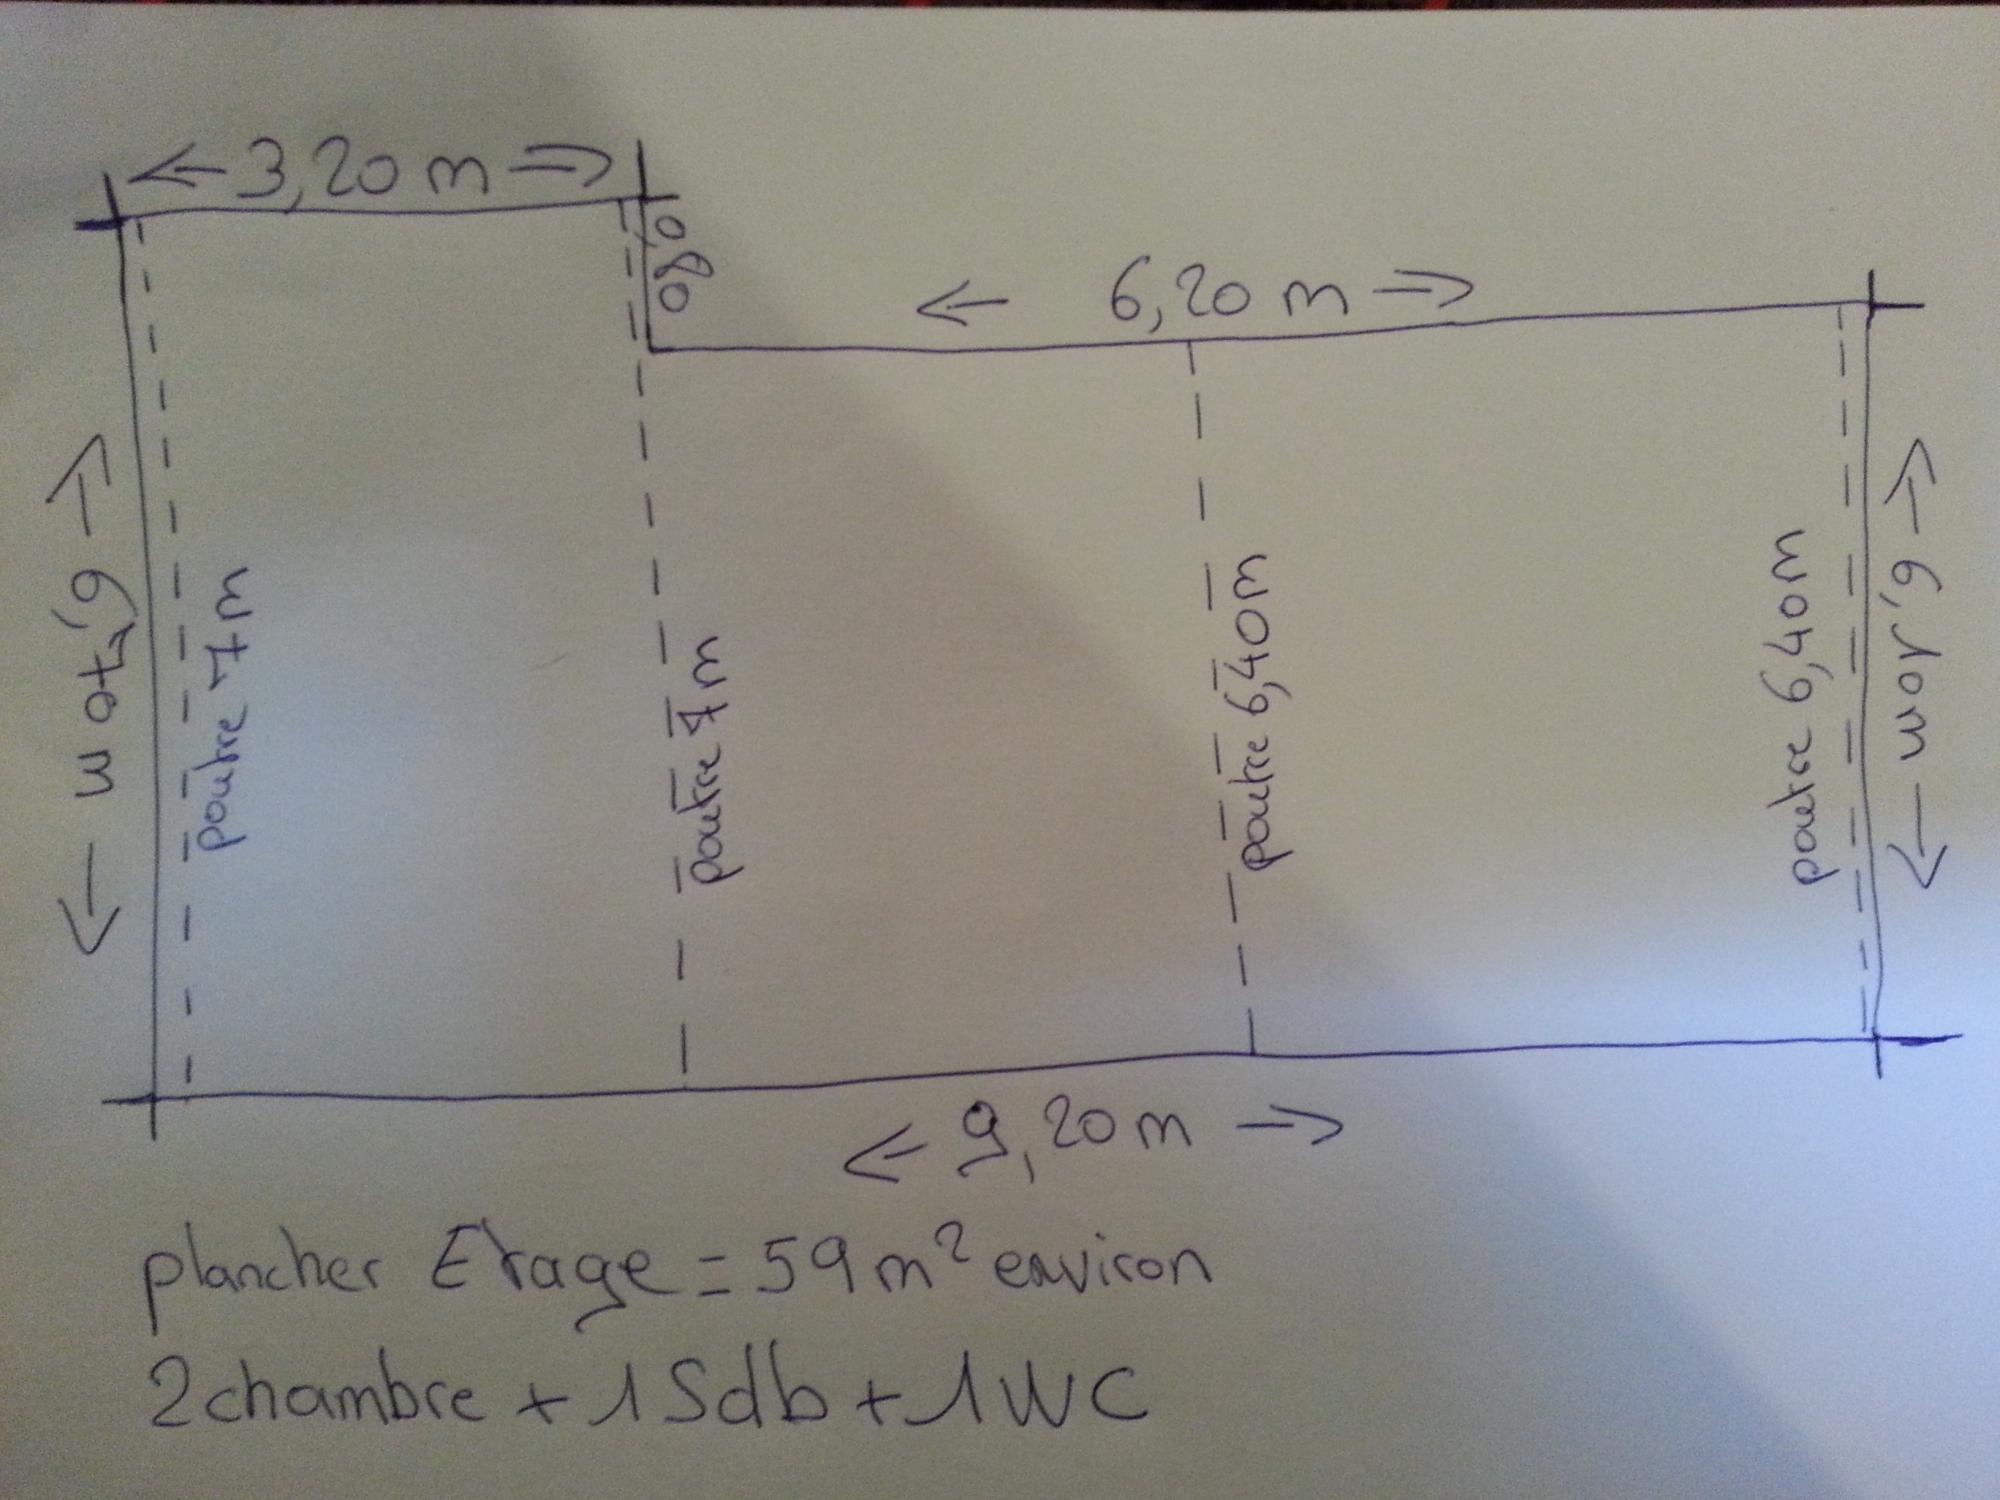 3,20 m
0,80
6,20 m
6,70 m
poutre 7 m
poutre 7 m
poutre 6,40m
poutre 6,40m
6,10m
9,20 m
plancher Etage = 59 m² environ
2 chambre + 1 Sdb + 1 WC